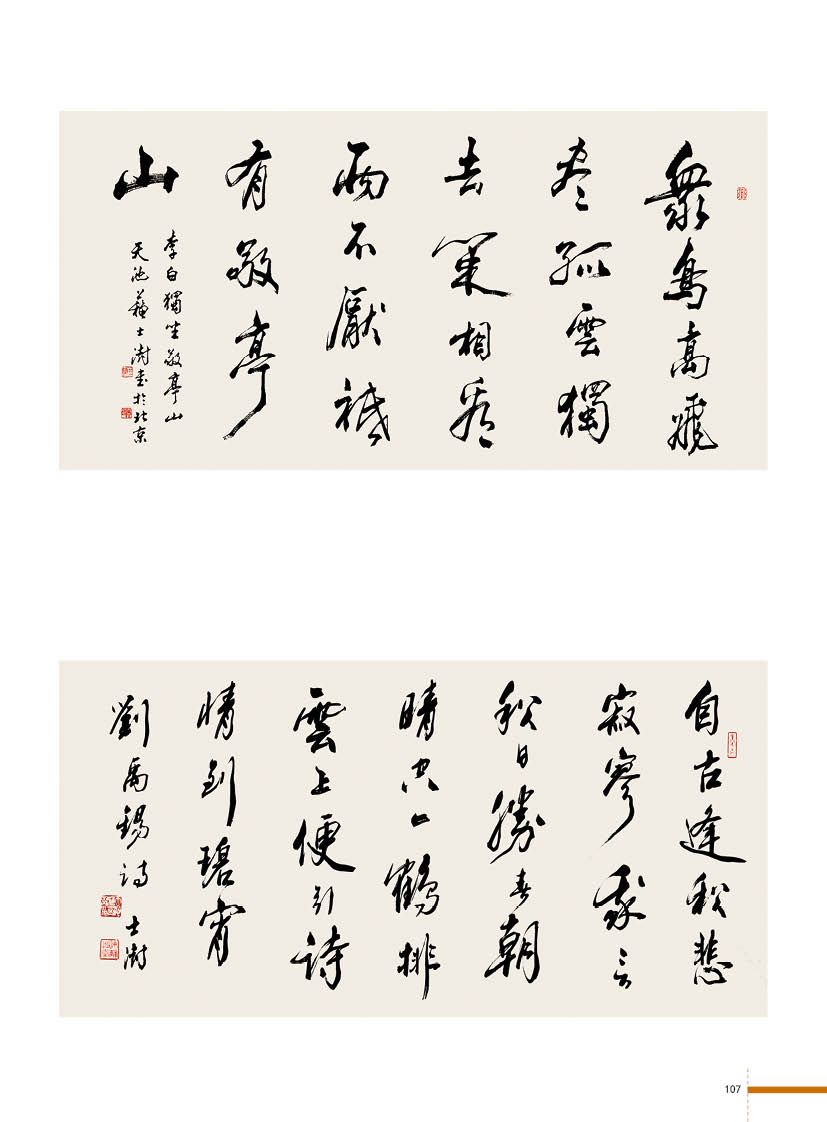 衆鳥高飛
尽孤雲獨
去閑相看
兩不厭祗
有敬亭
山
李白獨坐敬亭山
天池蘇士澍書於北京
自古逢秋悲
寂寥我言
秋日勝春朝
晴空一鶴排
雲上便引詩
情到碧霄
劉禹錫詩 士澍
107